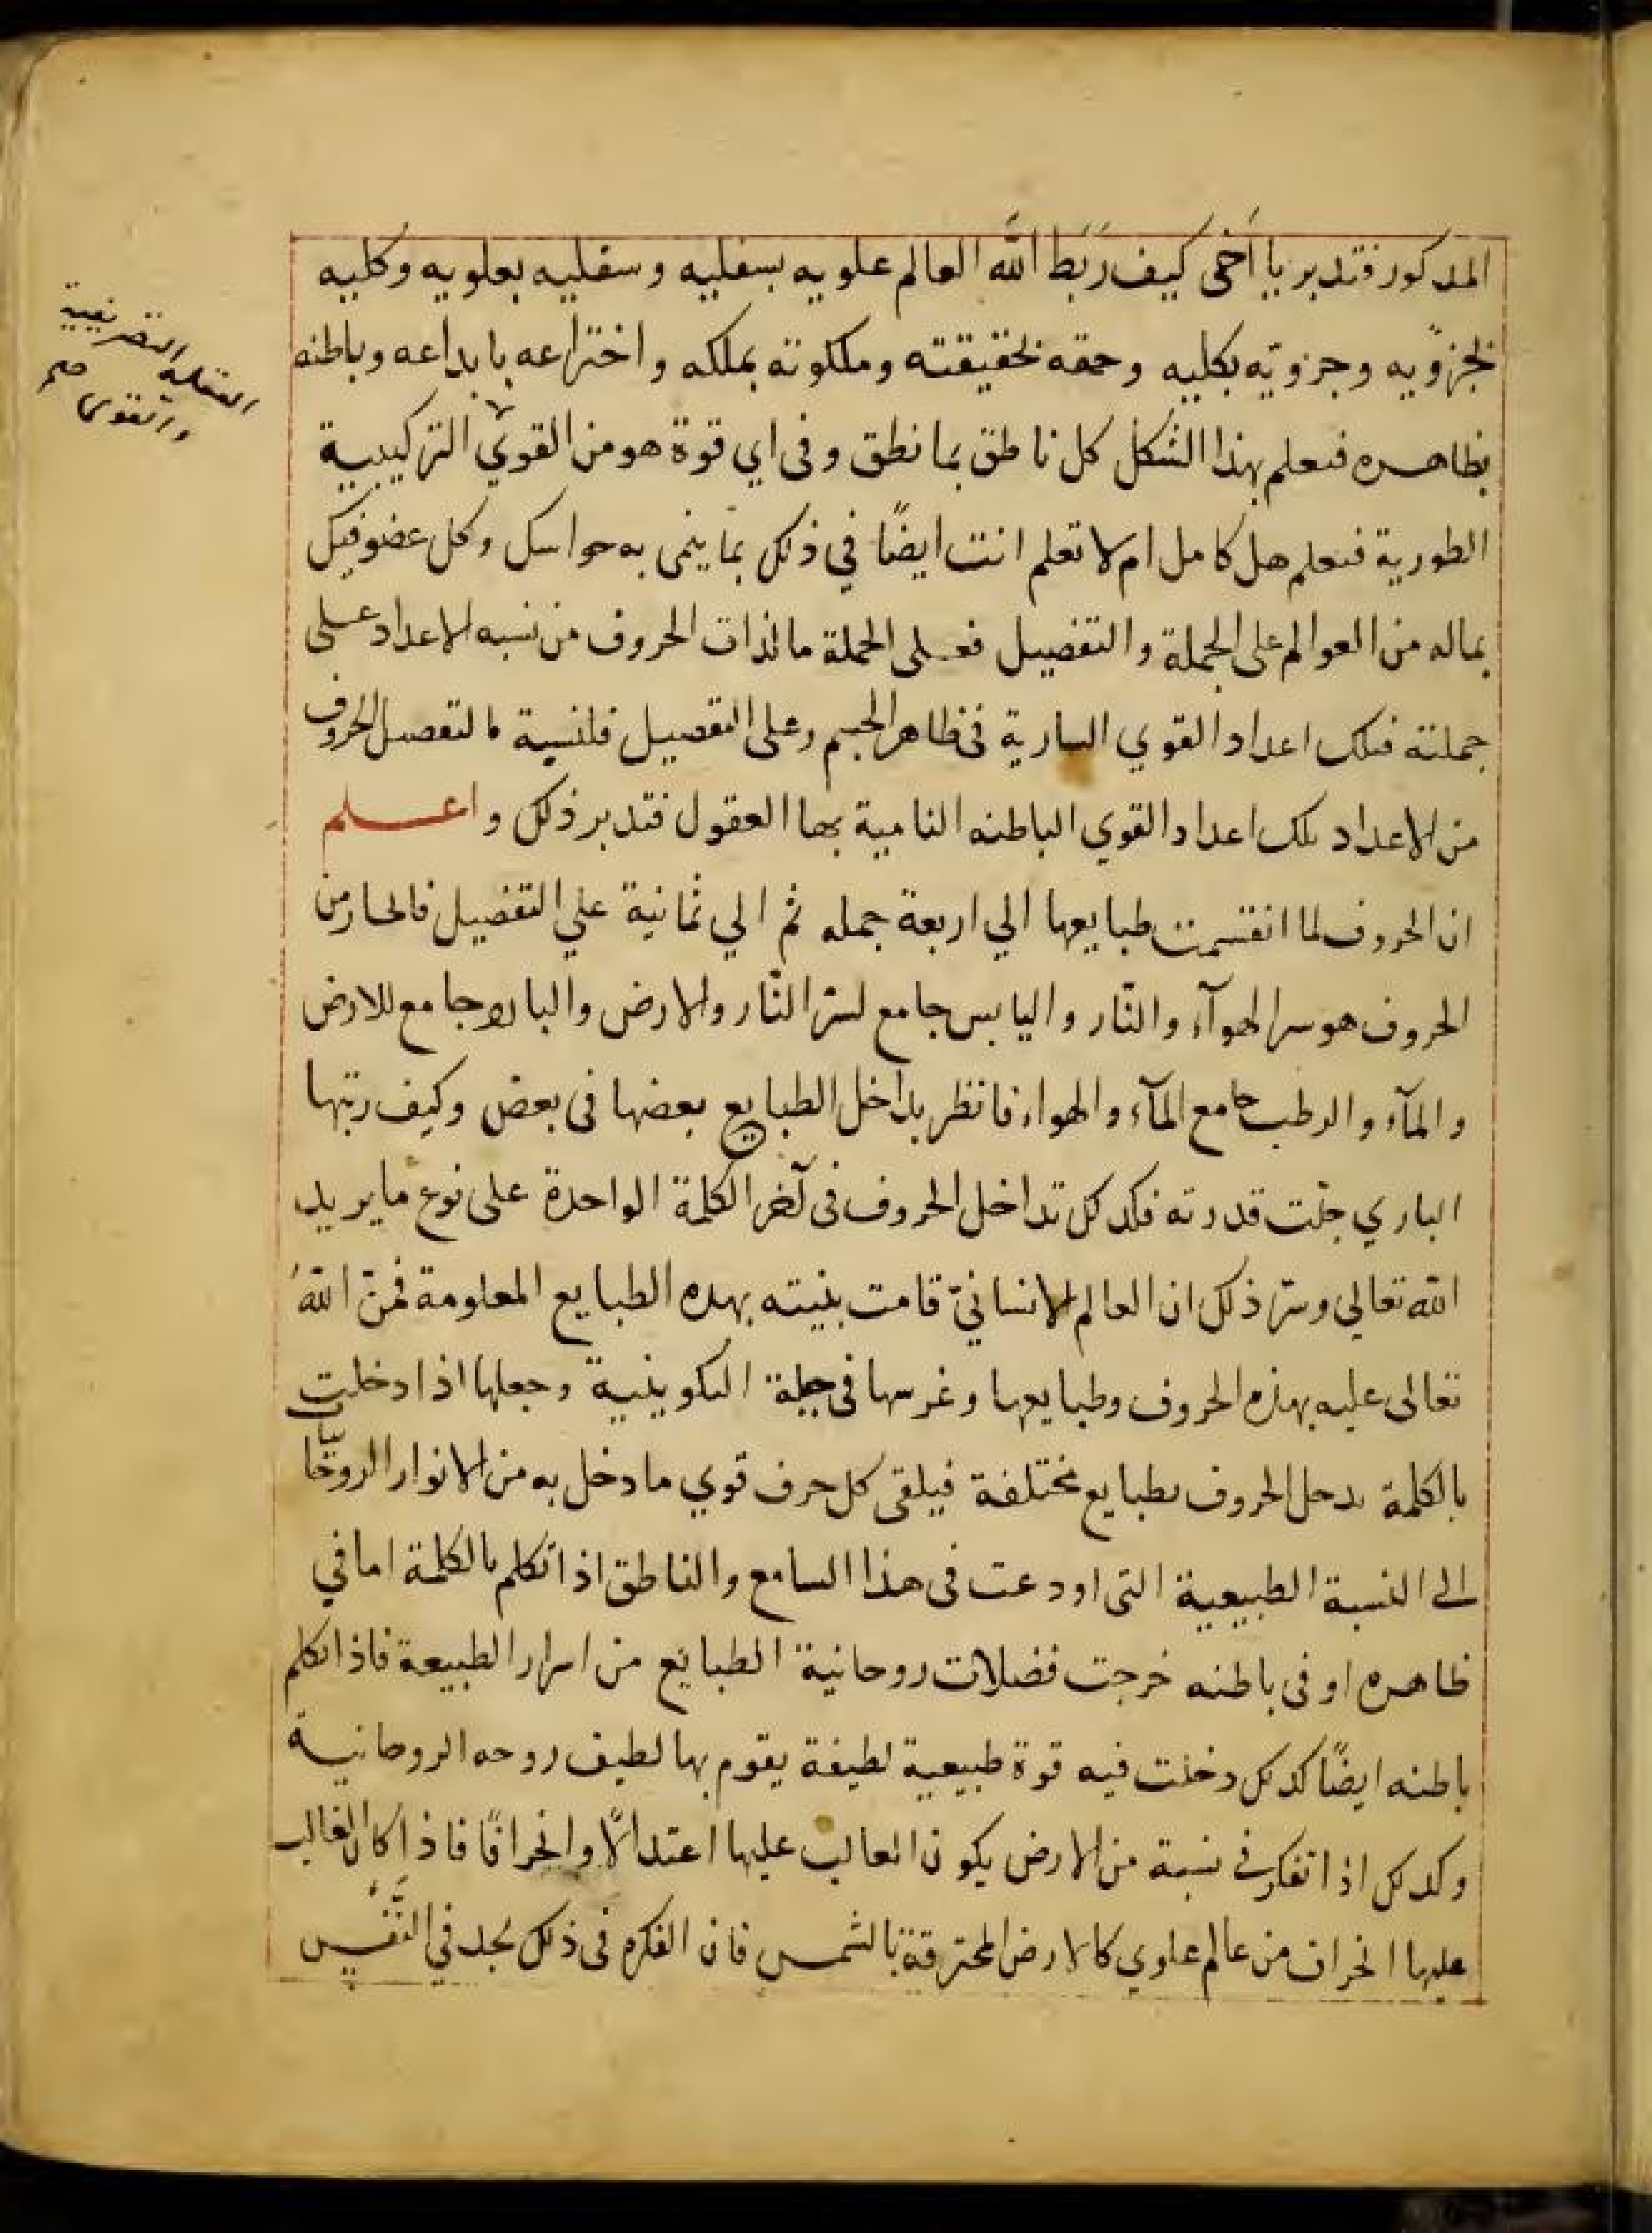 المدكور فتدبر يا أخى كيف رَبَط الله العالم علويه بسفليه وسفليه بعلويه وكليه
بجزؤيه وجزويه بكليه وحقه بحقيقته وملكوته بملكه واختراعه بابداعه وباطنه
بظاهره فتعلم بهذا الشكل كل ناطق بما نطق وفى اي قوة هو من القوي التركيبية
الطورية فتعلم هل كامل ام لا تعلم انت ايضًا في ذلك بما ينمى به حواسك وكل عضو فيك
بماله من العوالم على الجملة والتفصيل فعلى الجملة ما لذات الحروف من نسبه الاعداد على
جملته فتلك اعداد القوي السارية فى ظاهر الجسم وعلى التفصيل فلنسبة بالتفصيل الحروف
من الاعداد تلك اعداد القوي الباطنه النامية بها العقول فتدبر ذلك واعلم
ان الحروف لما انقسمت طبايعها الي اربعة جمله ثم الي ثمانية علي التفصيل فالحار من
الحروف هو سر الهوآء والنّار واليابس جامع لسرّ النّار والارض والبارد جامع للارض
والمآء والرطب جامع المآء والهواء فانظر بداخل الطبايع بعضها فى بعض وكيف رتبها
الباري جلّت قدرته فكدلك تداخل الحروف فى آخر الكلمة الواحدة على نوع ما يريد
الله تعالى وسرّ ذلك ان العالم الانسانيّ قامت بنيته بهده الطبايع المعلومة فمنّ اللهُ
تعالى عليه بهذه الحروف وطبايعها وغرسها فى جبلة التكوينية وجعلها اذا دخلت
بالكلمة بدخل الحروف بطبايع مختلفة فيلقى كل حرف قوي ما دخل به من الانوار الروحانيّا
الى النسبة الطبيعية التى اودعت فى هذا السامع والناطق اذا تكلم بالكلمة اما في
ظاهره او فى باطنه خرجت فضلات روحانية الطبايع من اسرار الطبيعة فاذا تكلم
باطنه ايضًا كدلك دخلت فيه قوة طبيعية لطيفة يقوم بها لطيف روحه الروحانية
وكدلك اذا تفكر فى نسبة من الارض يكون الغالب عليها اعتدالًا وانحرافًا فاذا كان الغالب
عليها انحراف من عالم علوي كالارض المحترقة بالشمس فان الفكره فى ذلك يُحد في النَّفْس
العقليه التصريفية
والقوى صح